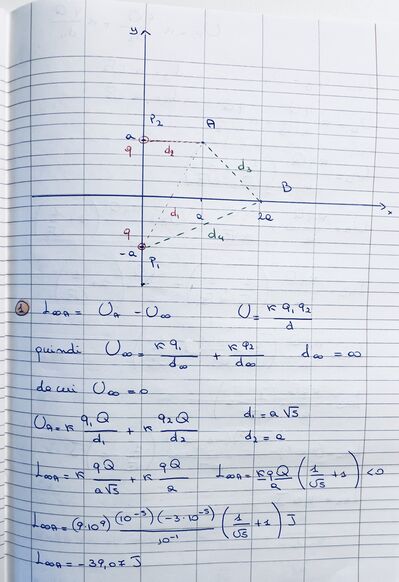 y
P₂
A
a
q
d₂
d₃
B
q
d₁
a
2a
x
d₄
-a
P₁
1 L∞A = U_A - U∞ U = K q₁ q₂ / d
quindi U∞ = K q₁ / d∞ + K q₂ / d∞ d∞ = ∞
da cui U∞ = 0
U_A = K q₁ Q / d₁ + K q₂ Q / d₂ d₁ = a √5
d₂ = a
L∞A = K qQ / a√5 + K qQ / a L∞A = KqQ / a (1/√5 + 1) < 0
L∞A = (9·10⁹) (10⁻⁵)(-3·10⁻⁵) / 10⁻¹ (1/√5 + 1) J
L∞A = -39,07 J